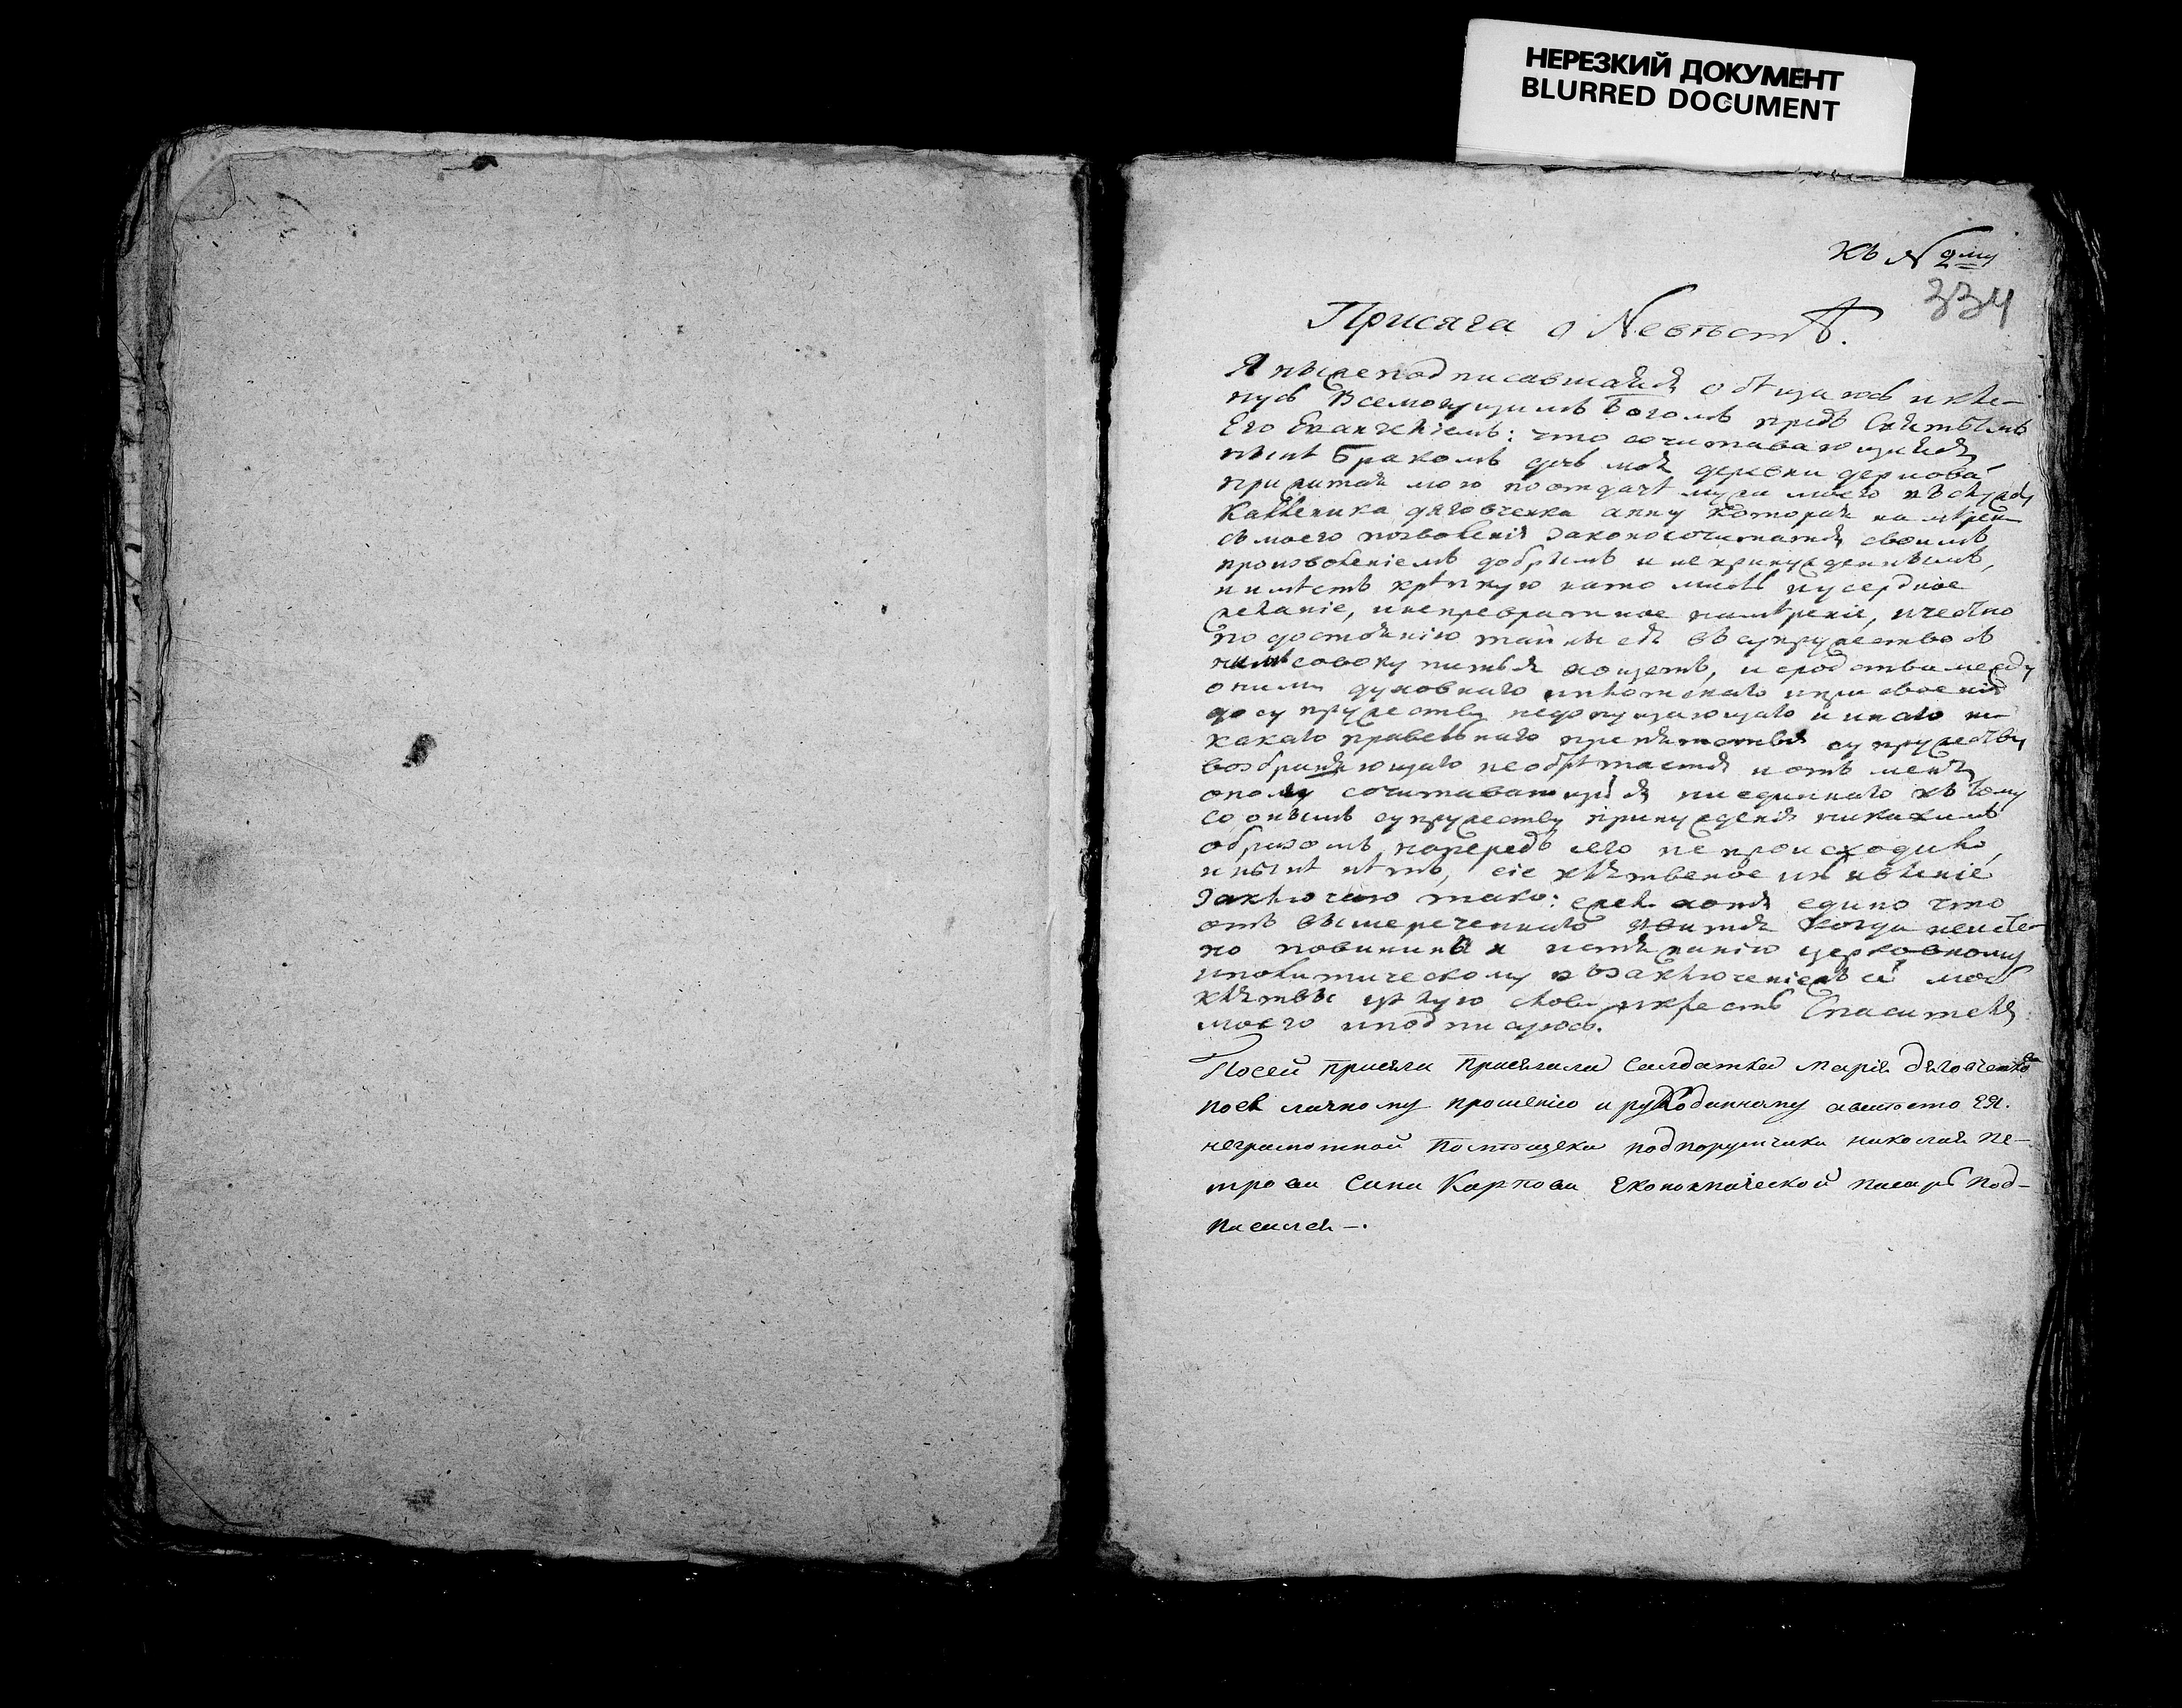 НЕРЕЗКИЙ ДОКУМЕНТ
BLURRED DOCUMENT
къ N 2му
334
Присяга о Невѣстѣ.
Я нижеподписавшаяся обѣщаюсь и кле-
нусь Всемогущимъ Богомъ предъ Святымъ
Его Евангеліемъ: что сочитавающаяся
нынѣ бракомъ дочь моя деревни
мою по отдачѣ мужа моего въ службу
анну которая намѣрена
съ моего позволенія законосочитатся своимъ
произволеніемъ добрымъ и непринужденнымъ,
и имѣетъ крѣпкую на то мысль и усердное
желаніе, и непревратное намѣреніе, и честно
по достоянію тайны сея въ супружество съ
нимъ совокупиться хощетъ, и сродства между
оними духовнаго и плотскаго и присвоенія
до супружества недопущающаго и инаго ни-
какаго правельнаго препятствія супружеству
возбраняющаго необрѣтается и отъ меня
оному сочитавающійся ни единнаго къ тому
со онымъ супружеству принужденія никакимъ
образомъ напередъ сего непроисходило,
и нынѣ нѣтъ, сіе клятвеное изъявленіе
заключаю тако: ежели хотя едино что
отъ вышереченнаго явится когда неисте-
но повинна истязанію церковному
и политическому въ заключеніе сей моей
клятвы цѣлую слова и крестъ Спасителя
моего и подписуюсь.
По сей присяги присягала салдатка Марія Дяговченкова
по ея личному прошенію и рукоданному а вместо ея
неграмотной помѣщика подпорутчика николая пе-
трова сина Карпова економической писарь под-
писался –.